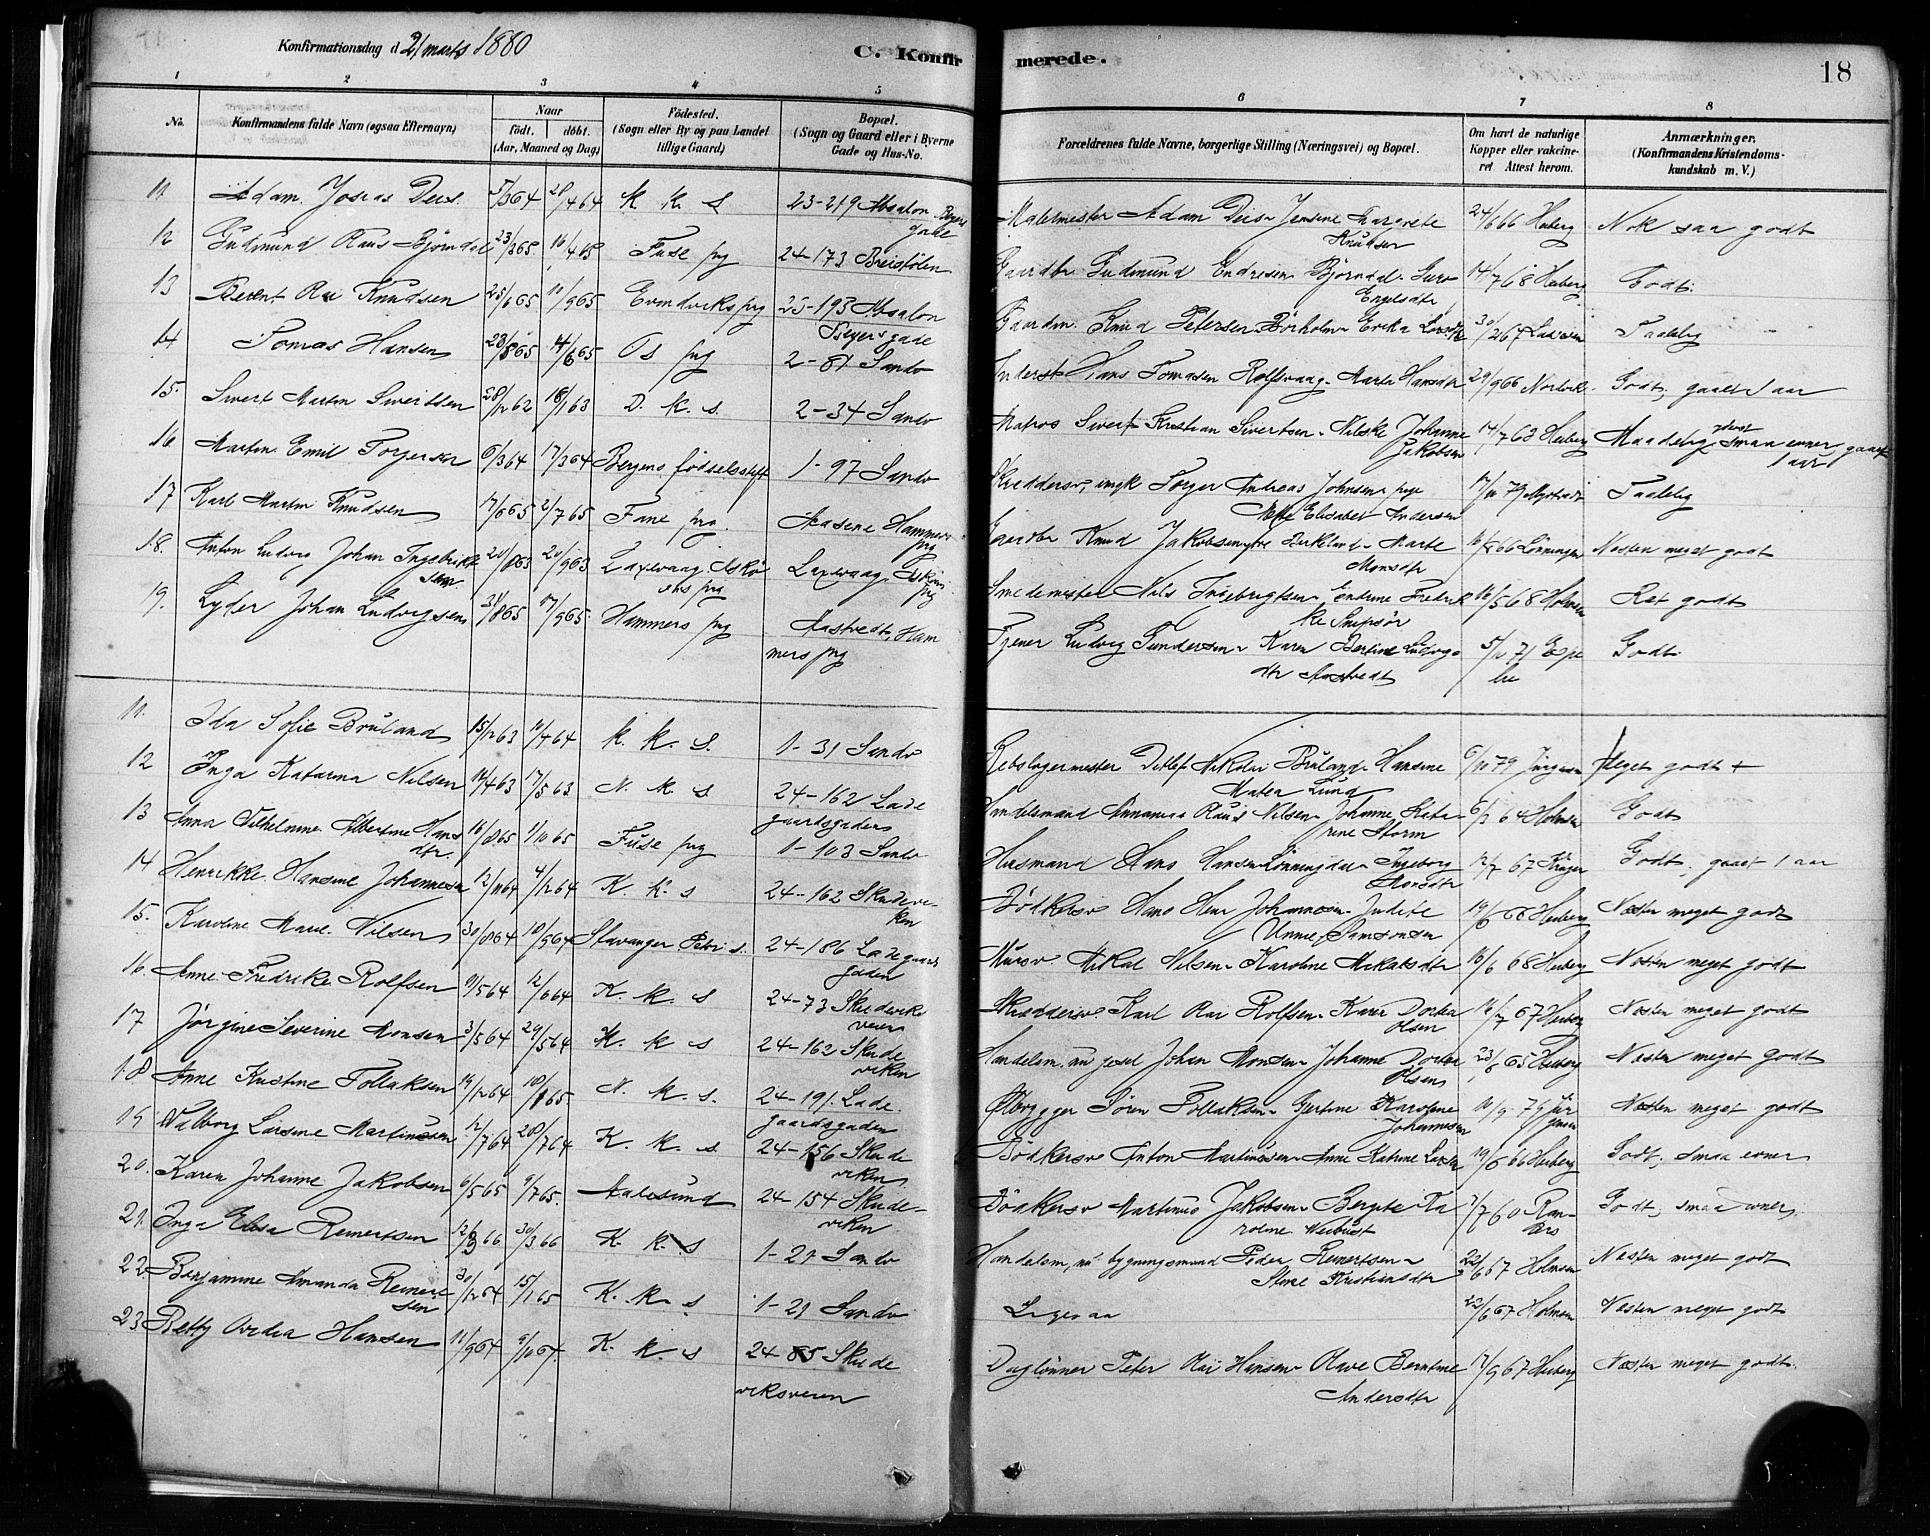 Konfirmationsdag d 21 marts 1880
C. Konfirmerede.
18
1 2 3 4 5 6 7 8
No. Konfirmandens fulde Navn (ogsaa Efternavn) Naar født. døbt. (Aar, Maaned og Dag) Fødested. (Sogn eller By og paa Landet tillige Gaard) Bopæl. (Sogn og Gaard eller i Byerne Gade og Hus-No. Forældrenes fulde Navne, borgerlige Stilling (Næringsvei) og Bopæl. Om havt de naturlige Kopper eller vakcineret Attest herom. Anmærkninger. (Konfirmandens Kristendomskundskab m. V.)
11 Adam Josias Deis 5/3 64 K. K. S 23-219 Absalon Beyers gade Malermester Adam Deis Jensine Margrete Knudsen 24/6 66 Heiberg Nok saa godt
12 Gudmund Raus Bjørndal 23/3 65 16/4 65 Fuse prg 24-173 Breistølen Gaardbr Gudmund Endresen Bjørndal Guro Engelsdtr 14/7 68 Heiberg Godt.
13 Berent Knudsen 25/6 65 10/9 65 Evindviks prg 23-193 Absalon Beyers gade Gaardm. Knud Petersen Erika 30/2 67 Taalelig
14 Tomas Hansen 14/6 65 Os prg 2-81 Sandv Inderst Hans Tomasen Rolfsvaag Marta Hansdtr 29/9 66 Godt, gaaet 1 aar
15. Sivert Martin Sivertsen 28/12 62 18/1 63 D. K. S. 2-34 Sandv Matros Sivert Kristian Sivertsen Johanne Jakobsen 14/7 63 Heiberg Maadelig smaa evner gaaet 1 aar
16 Martin Emil Torgersen 6/3 64 17/3 64 Bergens fødselsstift 1-97 Sandv Skreddersv, Torger Andreas Johnsen Elisabet Andersen 79 Taalelig
17 Karl Martin Knudsen 17/6 65 2/7 65 Fane prg. Aasene Hammers prg Gaardbr Knud Jakobsen Birkeland Marte Monsdtr 66 Lønningen Næsten meget godt
18. Anton Luders Johan Ingebrigtsen 20/8 63 20/9 63 Laxevaag Askøens prg Laxevaag Askøens prg Smedemester Nils Ingebrigtsen Fredrikke 16/5 68 Holmsen Ret godt
19. Lyder Johan Ludvigsen 31/8 65 17/9 65 Hammers prg Aastvedt, Hammers prg Tjener Ludvig Gundersen Karen Bertine Ludvigsdtr Aastvedt 71 Godt.
11. Ida Sofie Bruland 15/12 63 10/4 64 K. K. S. 1-31 Sandv Rebslagermester Ditlef Nikolai Bruland Hansine Matea Lund 79 Meget godt +
12 Inga Katarina Nilsen 14/4 63 17/5 63 N. K. S. 24-162 Ladegaardsgaden Handelsmand Annanias Raus Nilsen Johanne Katarine Storm 64 Holmsen Godt
13 Anna Vilhelmine Albertine Hansdtr. 16/8 65 1/10 65 Fuse prg 1-103 Sandv Husmand Hans Hansen Lønningdal Ingeborg Monsdtr 12/7 67 Krüger Godt, gaaet 1 aar
14 Henrikke Hansine Johannesen 12/11 64 4/12 64 K. K. S 24-162 Skudeviken Bødkersv Hans Henr Johannesen Judite Unnie Samsonsen 19/6 66 Heiberg Næsten meget godt
15. Karoline Marie Nilsen 30/8 64 18/9 64 Stavanger Petri s. 24-186 Ladegaardsgaden Mursv Mikal Nilsen Karoline Mikalsdtr 16/6 68 Heiberg Næsten meget godt
16 Anne Fredrike Rolfsen 9/5 64 12/6 64 K. K. S 24-73 Skudeviksveien Skreddersv Karl Rolfsen Karen Dortea Olsen 16/7 67 Heiberg Næsten meget godt
17 Jørgine Severine Monsen 3/5 64 29/5 64 K. K. S 24-162 Skudeviken Handelsm. Johan Monsen Johanne Dortea Olsen 23/6 65 Heiberg Næsten meget godt
18 Anne Kristine Tollaksen 14/12 64 N. K. S. 24-191 Ladegaardsgaden Ølbrygger Søren Tollaksen Gjertine Karoline Johannesen 79 Jürgensen Næsten meget godt
19 Valborg Larsine Martinussen 12/7 64 28/7 64 K. K. S. 24-156 Skudeviken Bødkersv Anton Martinussen Anne Katrine 19/6 66 Heiberg Godt, smaa evner
20. Karen Johanne Jakobsen 6/5 65 9/7 65. Aalesund 24-154 Skudeviken Bødkersv Martinus Jakobsen Bergite Karoline Godt, smaa evner,
21. Inga Elisa Reinertsen 66 30/3 66 K. K. S 1-21 Sandv Handelsm, nu bygningsmand Peder Reinertsen Stine Kristiansdtr 22/6 67 Holmsen Næsten meget godt
22. Benjamine Amanda Reinertsen 30/12 64 15/1 65 K. K. S 1-21 Sandv Ligesaa 22/6 67 Holmsen Næsten meget godt
23 Betty Ovidia Hansen 11/9 64 9/10 64. K. K. S 24-85 Skudeviksveien Daglønner Peter Hansen Olave Berntine Andersdtr 17/9 67 Heiberg Næsten meget godt.